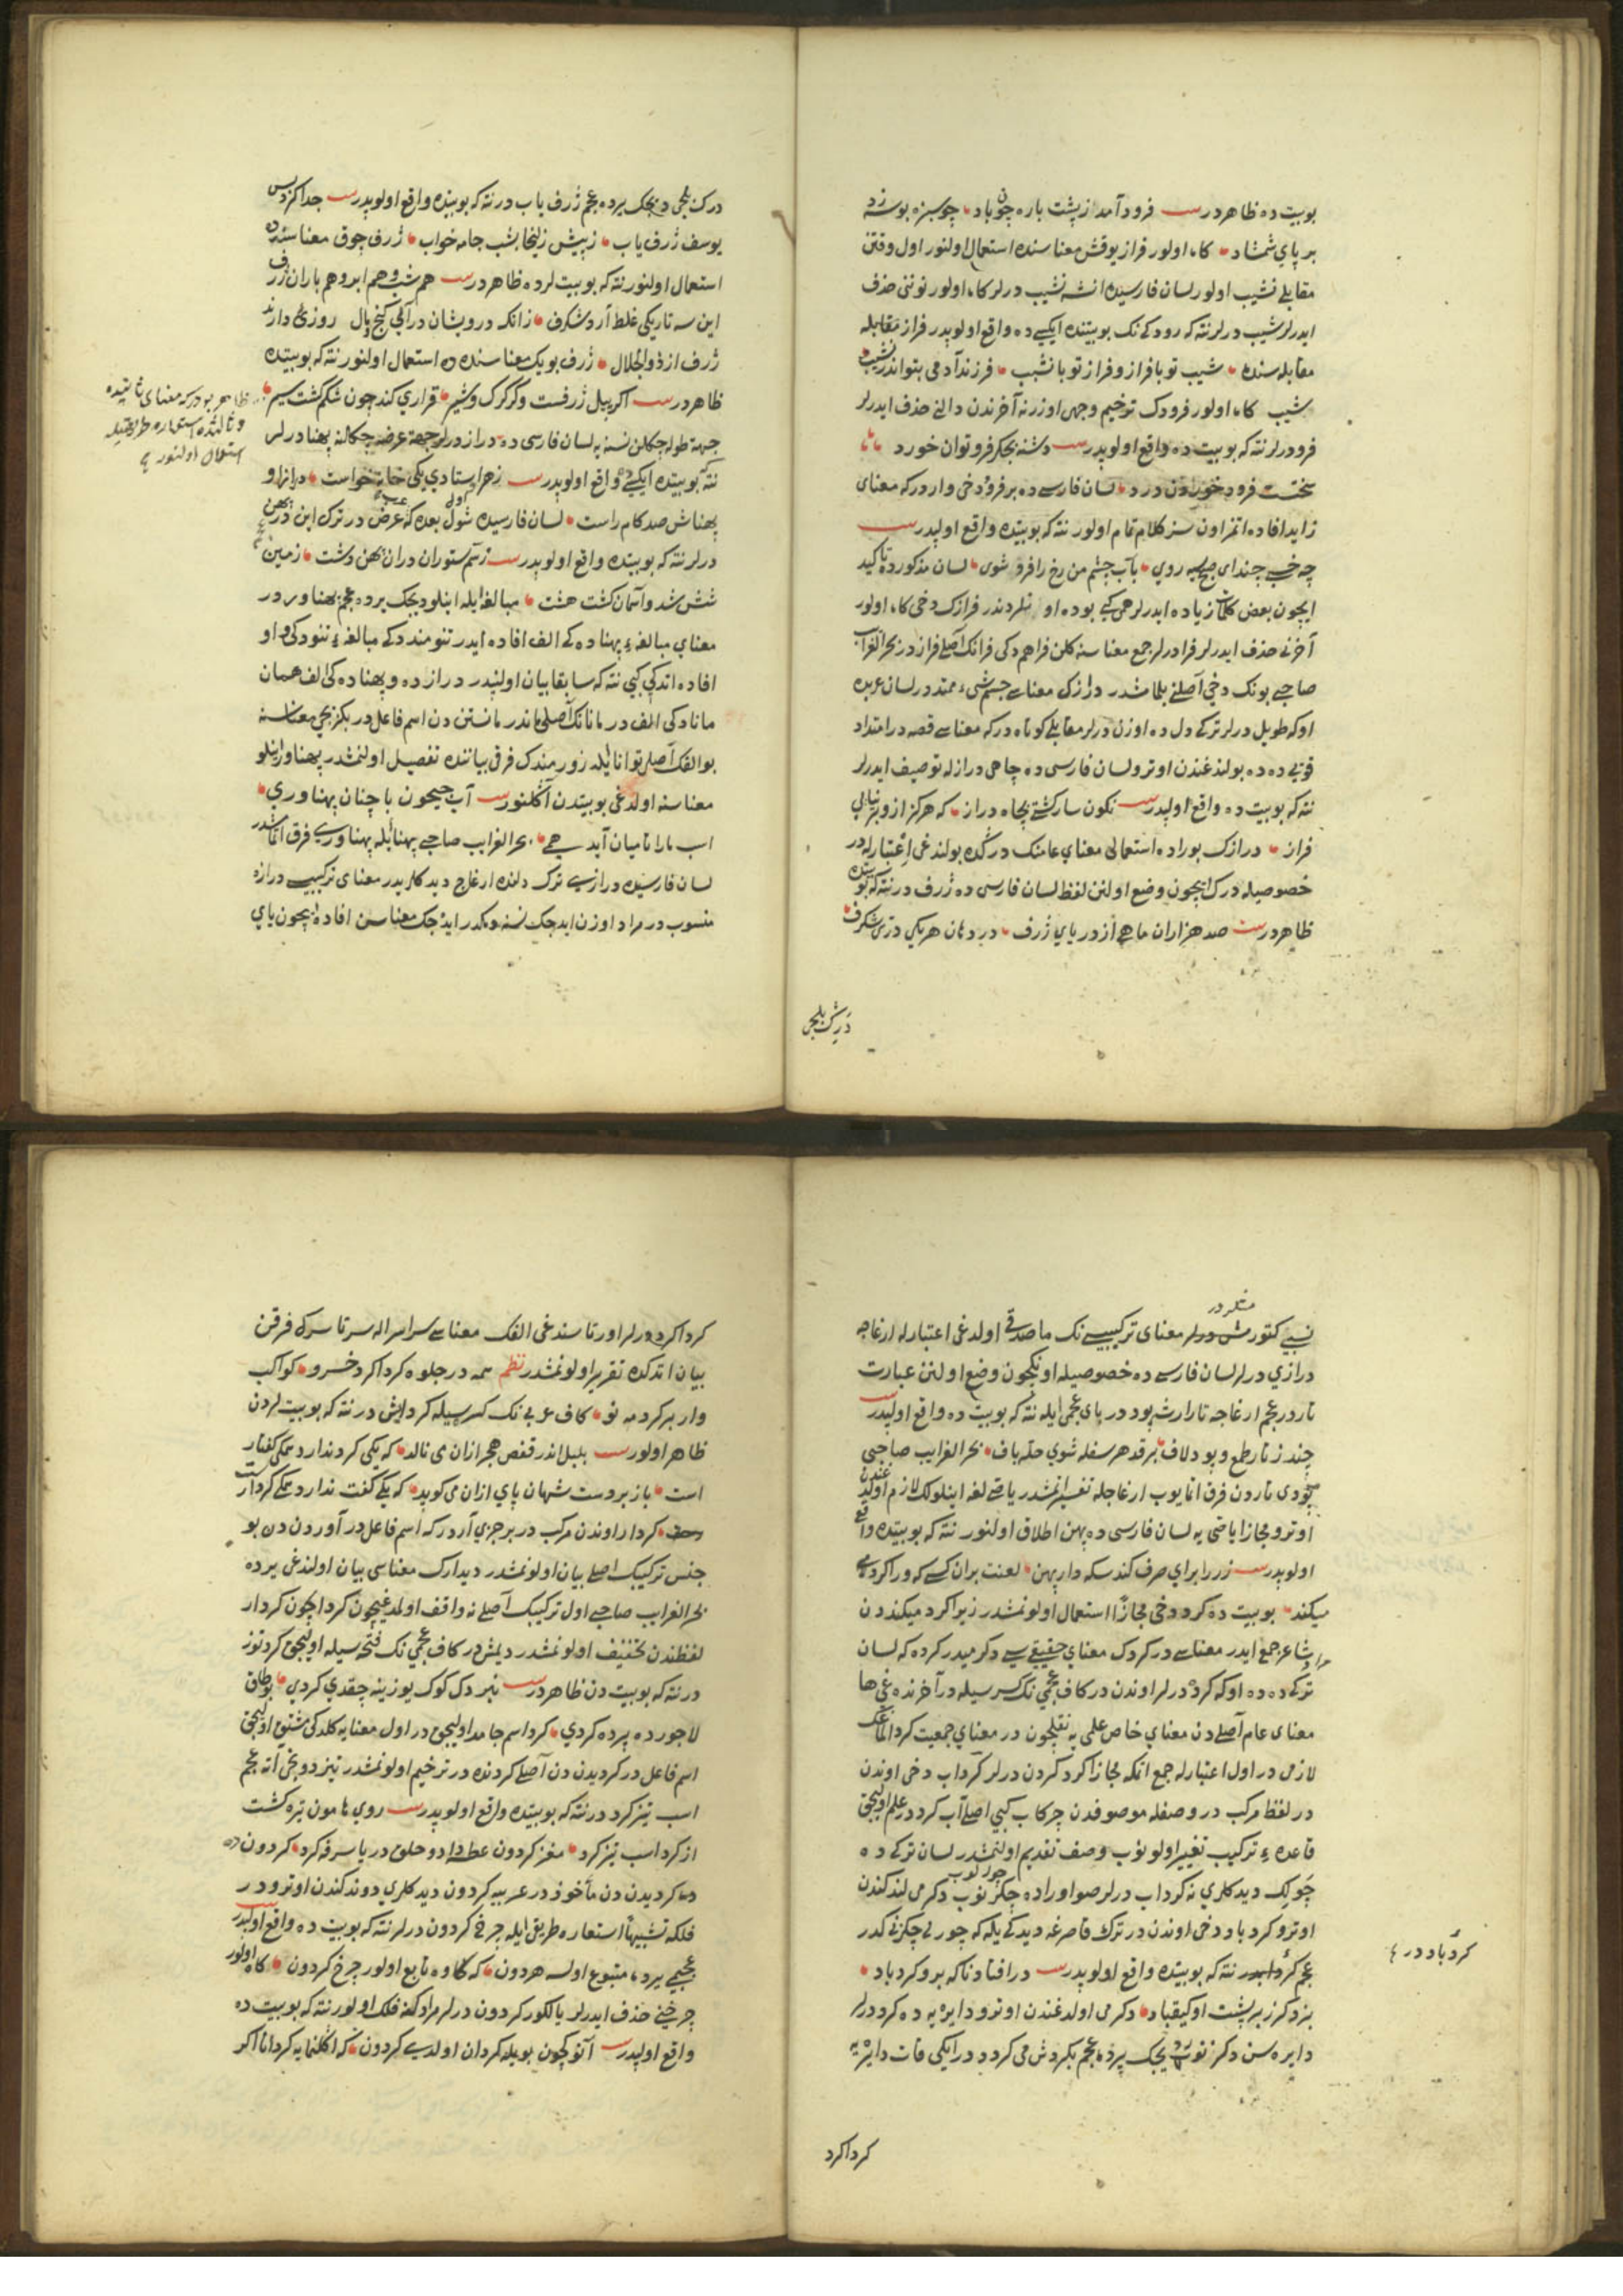 بو بیت ده ظاهردر بیت فرود آمد از پشت باره چون باد چو سبزه بوسه زد
بر پای شمشاد کاه اولور فراز یوقش معناسنده استعمال اولنور اول وقتن
مقابلی نشیب اولور لسان فارسیده انشه نشیب درلر کاه اولور نوننی حذف
ایدرلر شیب درلر نته که رودکی نک بو بیتنده ایکیسی ده واقع اولوبدر فراز مقابله
مقابله سنده شیب تو با فراز و فراز تو با نشیب فرزند آدمی بتو اندر بشیب
شیب کاه اولور فرودک ترخیم وجهی اوزرنه آخرندن دالنی حذف ایدرلر
فرو درلر نته که بو بیت ده واقع اولوبدر بیت دشنه بجکر فرو توان خورد
سختست فرود خوردن درد لسان فارسی ده بر فرود دخی واردرکه معنای
زاید افاده اتمز اونسز کلام تمام اولور نته که بو بیتده واقع اولبدر بیت
چه خسبی چندای صبح سیه روی بآب چشم من رخ را فرو شوی لسان مذکورده تاکید
ایچون بعض کلمات زیاده ایدرلر همی کبی بوده او نلردندر فرازک دخی کاه اولور
آخرنی حذف ایدرلر فرا درلر جمع معناسنه کلن فراهم دکی فرانک اصلی فرازدر بحر الغرایب
صاحبی بونک دخی اصلنی بلمامشدر درازک معناسی جسم شیء ممتددر لسان عربده
اوکه طویل درلر ترکی دل ده اوزن درلر مقابلی کوتاه درکه معناسی قصه در امتداد
فوقی ده ده بولندغندن اوترو لسان فارسی ده چاهی درازله توصیف ایدرلر
نته که بو بیت ده واقع اولبدر بیت نکون سار کشتی بچاه دراز که هرکز ازو بر نیایی
فراز درازک بوراده استعمالی معنای عامنک درکده بولندغی اعتباریله در
خصوصیله درک ایچون وضع اولنن لفظ لسان فارسی ده ژرف درنته که بو بیتده
ظاهردر بیت صد هزاران ماهی از دریای ژرف در دهان هریکی دری شکرف
درک بلجی
درک بلجی دیجک یرده عجم ژرف یاب درنته که بو بیتده واقع اولوبدر بیت جدا کرد پس
یوسف ژرف یاب زپیش زلیخا بشب جامه خواب ژرف چوق معناسنده ده
استعمال اولنور نته که بو بیتلرده ظاهردر بیت هم شب و هم ابر و هم باران ژرف
این سه تاریکی غلط آرد شکرف زانکه درویشان درآلی کنج و مال روزئی دارند
ژرف از ذو الجلال ژرف بویک معناسنده ده استعمال اولنور نته که بو بیتده
ظاهردر بیت اکر پیل ژرفست وکر کرک و شیر قراری کند چون شکم کشت سیر
جهة طوله چکلن نسنه یه لسان فارسی ده دراز درلر جهة عرضه چکالنه پهنا درلر
نته که بو بیتده ایکیسی ده واقع اولوبدر بیت زهر استادی یکی خانه خواست درازا و
پهناش صد کام راست لسان فارسیده شول بعده که عرض در ترک این در پهن
درلر نته که بو بیتده واقع اولوبدر بیت زسم ستوران دران پهن دشت زمین
شش شد و آسمان کشت هشت مبالغه ایله اینلو دیجک یرده عجم پهناور در
معنای مبالغه ء پهناده کی الف افاده ایدر تنومندده کی مبالغه ء تنوده کی واو
افاده اتدکی کبی نته که سابقا بیان اولنبدر درازده و پهناده کی الف همان
مانادکی الفدر مانانک اصلی ماندر مانستن دن اسم فاعلدر بکزیجی معناسنه
بو الفک اصلی توانا یله زورمندک فرقی بیاننده تفصیل اولنمشدر پهناور اینلو
معناسنه اولدغی بو بیتدن آکلنور بیت آب جیحون با چنان پهناوری
اسب ما را تا میان آید همی بحر الغرایب صاحبی پهنایله پهناوری فرق اتمامشدر
لسان فارسیده درازی ترک دلنده ارغاج دیدکلریدر معنای ترکیبی درازه
منسوب در مراد اوزن ایدجک نسنه دیمکدر ایدجک معناسن افاده ایچون یای
ظاهر بودرکه معنای ثانیده
و ثالثده استعاره طریقیله
استعمال اولنور
نسبی کتورمشلردر معنای ترکیبی نک ما صدقی اولدغی اعتباریله ارغاجه
درازی درلر لسان فارسی ده خصوصیله اونکچون وضع اولنن عبارت
تاردر عجم ارغاجه تار ارشه پود در بای عجمی ایله نته که بو بیت ده واقع اولبدر بیت
چند ز تار طمع و پود لاف بر قد هر سفله شوی حله باف بحر الغرایب صاحبی
پودی تاردن فرق اتمایوب ارغاجله تفسیر اتمشدر یاصی لغه اینلولک لازم اولدغندن
اوترو مجازا یاصی یه لسان فارسی ده پهن اطلاق اولنور نته که بو بیتده واقع
اولوبدر بیت زر را برای صرف کند سکه دار پهن لعنت بران کسی که ورا کرد می
میکند بو بیت ده کرد دخی مجازا استعمال اولونمشدر زیرا کرد میکنددن
مراد شاعر جمع ایدر معناسی در کردک معنای حقیقیسی دکرمیدر کرده که لسان
ترکی ده ده اوکه کرده درلر اوندن در کاف عجمی نک کسریله در آخرنده غی ها
معنای عام اصلی دن معنای خاص علمی یه نقلچون در معنای جمعیت کرد اتماغک
لازمی در اول اعتباریله جمع اتمکه مجازا کرد کردن درلر کرداب دخی اوندن
در لفظ مرکب در وصفله موصوفدن چرکاب کبی اصلی آب کرددر علم اولیجق
قاعده ء ترکیب تغییر اولونوب وصف تقدیم اولنمشدر لسان ترکی ده
چورلک دیدکلری نه کرداب درلر صو اوراده چورلنوب دکرمی لندکندن
اوترو کردباد دخی اوندن در ترک قاصرغه دیدکی یله که چورلی چکزنی کدر
عجم کردباد در نته که بو بیتده واقع اولوبدر بیت در افتاد ناکه برو کردباد
بزد کرز بر پشت او کیقباد دکرمی اولدغندن اوترو دایره یه ده کرد درلر
دایره سن دکرننوب دیجک یرده عجم بکردش می کردد در ایکی قات دایره یه
کردباد در
کرداکرد
کرداکرد درلر اورتاسندغی الفک معناسی سراسرله سرتاسرک فرقن
بیان اتدکده تقریر اولونمشدر نظم سمه در جلوه کرداکرد خسرو کواکب
وار بر کرد مه نو کاف عربی نک کسریله کردایش درنته که بو بیتلردن
ظاهر اولور بیت بلبل اندر قفص هجر ازان می نالد که یکی کردندارد همکی کفتار
است باز بر دست شهان پای ازان می کوبد که یکی کفت ندارد همکی کردارست
کردار اوندن مرکب در برجزی آردرکه اسم فاعلدر آوردن دن بو
جنس ترکیبک اصلی بیان اولونمشدر دیدارک معناسی بیان اولندغی یرده
بحر الغرایب صاحبی اول ترکیبک اصلی نه واقف اولمدغیچون کرداچون کردار
لفظندن تخفیف اولونمشدر دیمش در کاف عجمی نک فتحه سیله اولیجق کرد توز
درنته که بو بیت دن ظاهردر بیت نبردک کوک یوزینه چقدی کردی بو طاق
لاجورده پرده کردی کرد اسم جامد اولیجق در اول معنایه کلدکی مشتق اولیجق
اسم فاعلدر کردیدن دن اصلی کردنده در ترخیم اولونمشدر تیز دونجی آته عجم
اسب تیز کرد درنته که بو بیتده واقع اولوبدر بیت روی هامون تیره کشت
از کرد اسب تیز کرد مغز کردون عطسه داد و حلق دریا سرفه کرد کردون ده
کردیدن دن ماخوذ در عربیه کردون دیدکلری دوندکندن اوترودر
فلکه تشبیها استعاره طریقی ایله چرخ کردون درلر نته که بو بیت ده واقع اولبدر بیت
عجبمی یرده متبوع اولسه هردون که کاوه تابع اولور چرخ کردون کاه اولور
چرخی حذف ایدرلر یالکوز کردون درلر مراد کنه فلک اولور نته که بو بیت ده
واقع اولبدر بیت آنوکچون بویله کردان اولدی کردون که اکلنمایه کردانا اکر